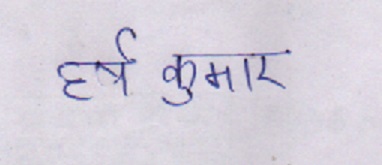 हर्ष कुमार